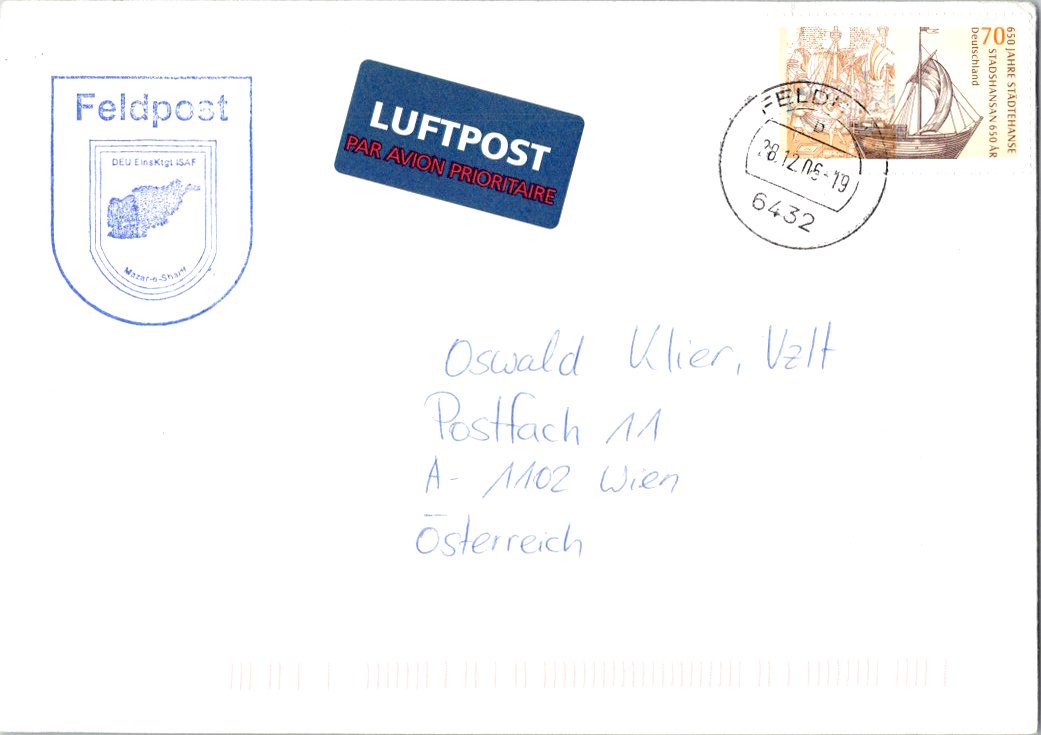 Feldpost
DEU EinsKtgt ISAF
Mazar-e-Sharif
LUFTPOST
PAR AVION PRIORITAIRE
650 JAHRE STÄDTEHANSE
STADSHANSAN 650 ÅR
70
Deutschland
b
28.12.06-19
6432
Oswald Klier, Vzlt
Postfach 11
A- 1102 Wien
Österreich